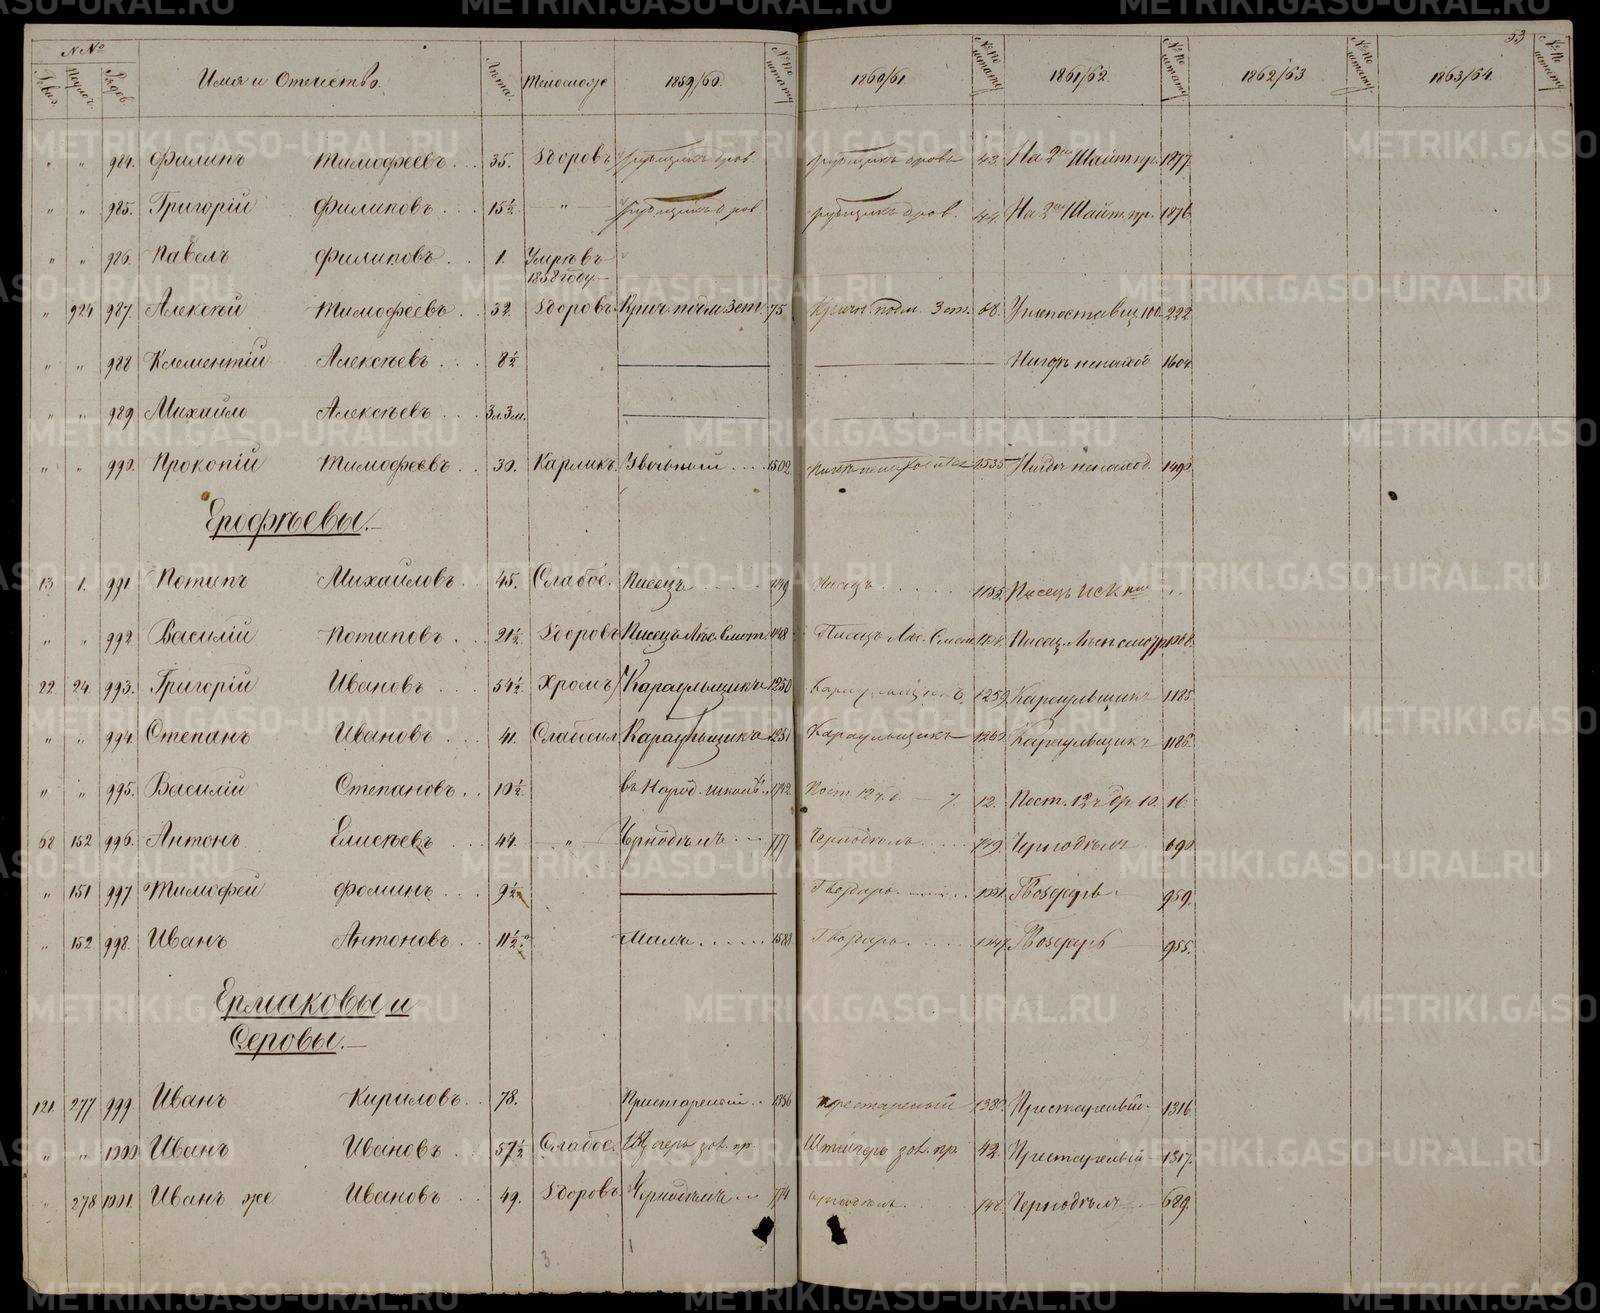 №№
Ревиз. Подвор. Рядов. Имя и Отчество. Лета. Телослож. 1859/60. №№ по штату 1860/61 №№ по штату 1861/62. №№ по штату 1862/63 №№ по штату 1863/64. №№ по штату
53
" " 984. Филипъ Тимофеевъ 35. Здоровъ рубщикъ дров. рубщикъ дровъ 43. На 2ой Шайт. пр. 1877.
" " 985. Григорій Филиповъ 15½ " рубщикъ дров рубщикъ дров. 44. На 2ой Шайт. пр. 1876.
" " 986. Павелъ Филиповъ 1. Умрѣвъ
1858 году
" 924 987. Алексѣй Тимофеевъ 32. Здоровъ. Крич. подм. 3 ст. 75 Кричн. подм. 3 ст. 68. Углепоставщ. 222
" " 988 Клементій Алексѣевъ 8½ Нигдѣ ненаход 1604
" " 989 Михайло Алексѣевъ 3 л. 3 м.
" " 990. Прокопій Тимофеевъ 30. Карликъ. Увольный 1502 1535 Нигдѣ ненаход. 1490
Ерофѣевы.
13 1. 991. Потапъ Михайловъ 45. Слабое. Писецъ 1149 Писецъ 1155. Писецъ
" " 992. Василій Потаповъ 21½ Здоровъ Писецъ Лѣс. Смот. 1148 Писецъ Лѣс. Смот. Писец. Лѣсн. смотр.
22. 24 993. Григорій Ивановъ 54½ Хромъ Караульщикъ 1250 Караульщикъ 1259 Караульщикъ 1185
" " 994 Степанъ Ивановъ 41. Слабосил. Караульщикъ 1251 Караульщикъ 1260 Караульщикъ 1186.
" " 995. Василій Степановъ 10½ въ Народ. школѣ 1792. Пост. 12 ч. д. — 7. 12. Пост. 12 ч. др. 10. 16.
68 152 996. Антонъ Елисѣевъ 44. " Чернодѣлъ 777 Чернодѣлъ 749. Чернодѣлъ 690
" 151 997 Тимофей Фоминъ 9½ Гвоздарь Гвоздарь 959.
" 152 998. Иванъ Антоновъ 11½ Малъ 1581 Гвоздарь 1147. Гвоздарь 955.
Ермаковы и
Серовы.
121. 277 999. Иванъ Кириловъ 78. Престарелый 1356 престарелый 1380. Престарелый 1316.
" " 1000 Иванъ Ивановъ 57½ Слабое. Штейгеръ зол. пр. Штейгеръ зол. пр. 42. Престарелый 1317.
" 278 1001. Иванъ же Ивановъ 49. Здоровъ. Чернодѣлъ 774 чернодѣлъ 748. Чернодѣлъ 689.
3
1
METRIKI.GASO-URAL.RU